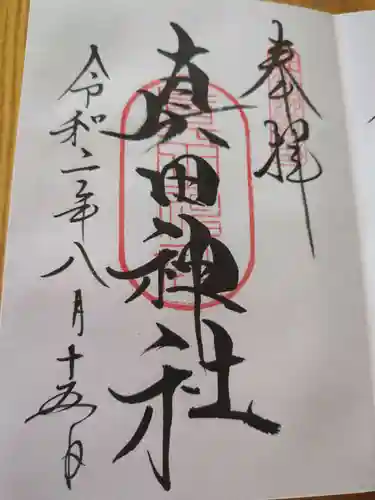 奉拝
真田神社
令和二年八月十五日